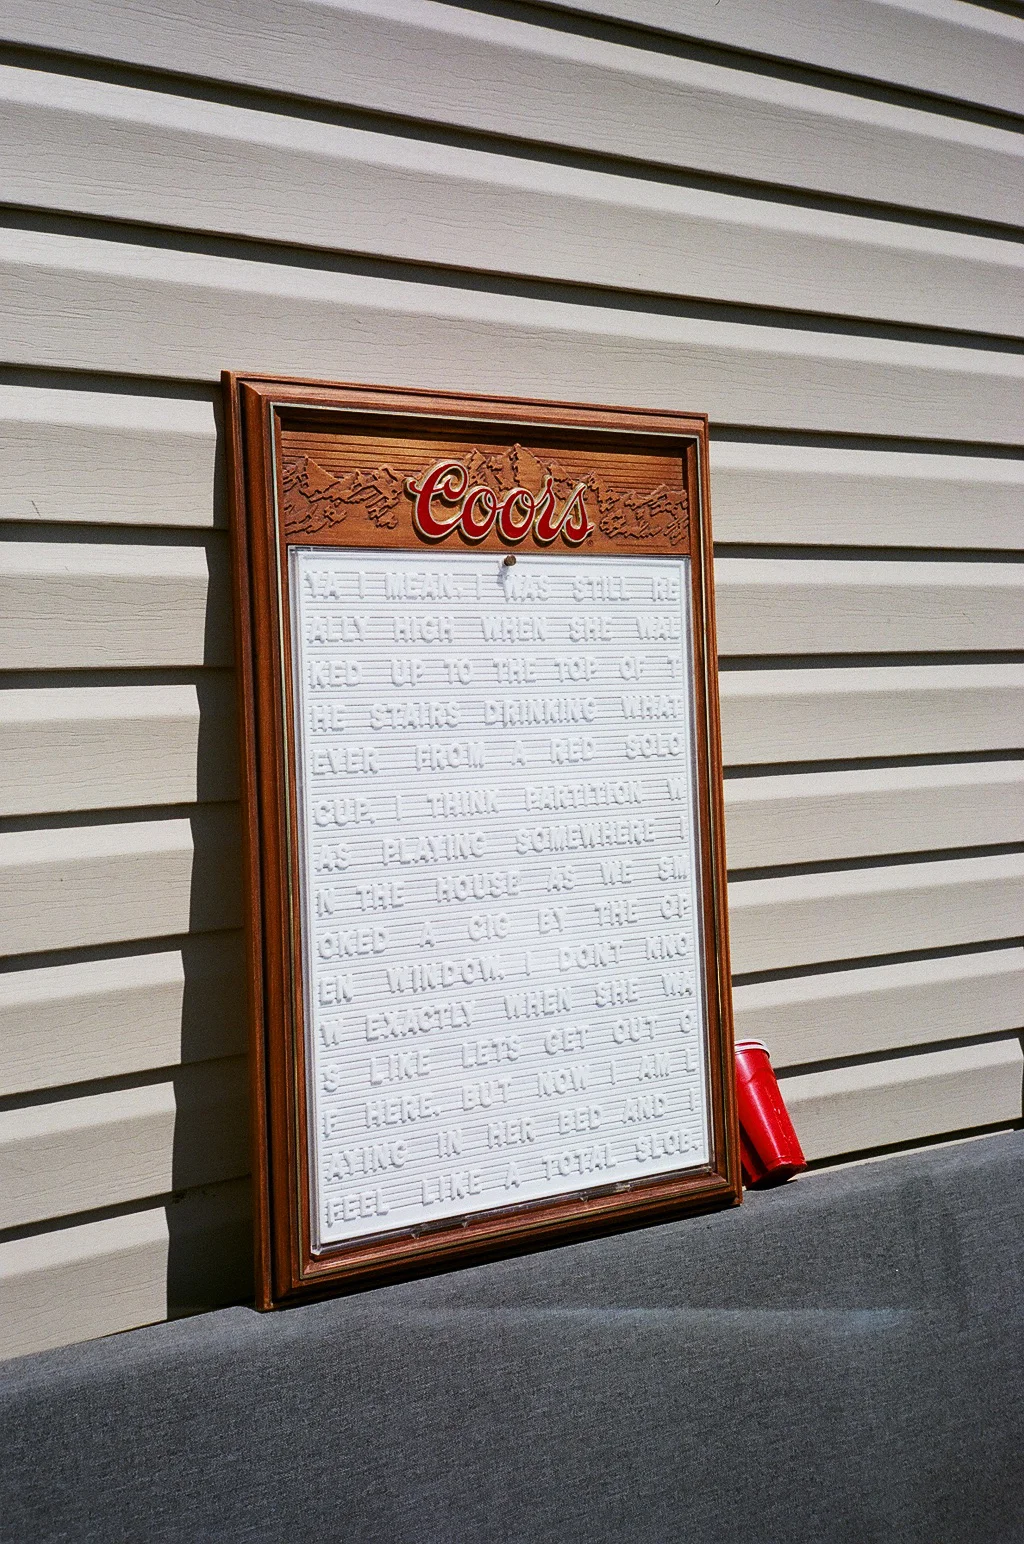 Coors
YA I MEAN, I WAS STILL RE
ALLY HIGH WHEN SHE WAL
KED UP TO THE TOP OF T
HE STAIRS DRINKING WHAT
EVER FROM A RED SOLO
CUP. I THINK PARTITION W
AS PLAYING SOMEWHERE I
N THE HOUSE AS WE SM
OKED A CIG BY THE OP
EN WINDOW. I DONT KNO
W EXACTLY WHEN SHE WA
S LIKE LETS GET OUT O
F HERE. BUT NOW I AM L
AYING IN HER BED AND I
FEEL LIKE A TOTAL SLOB.